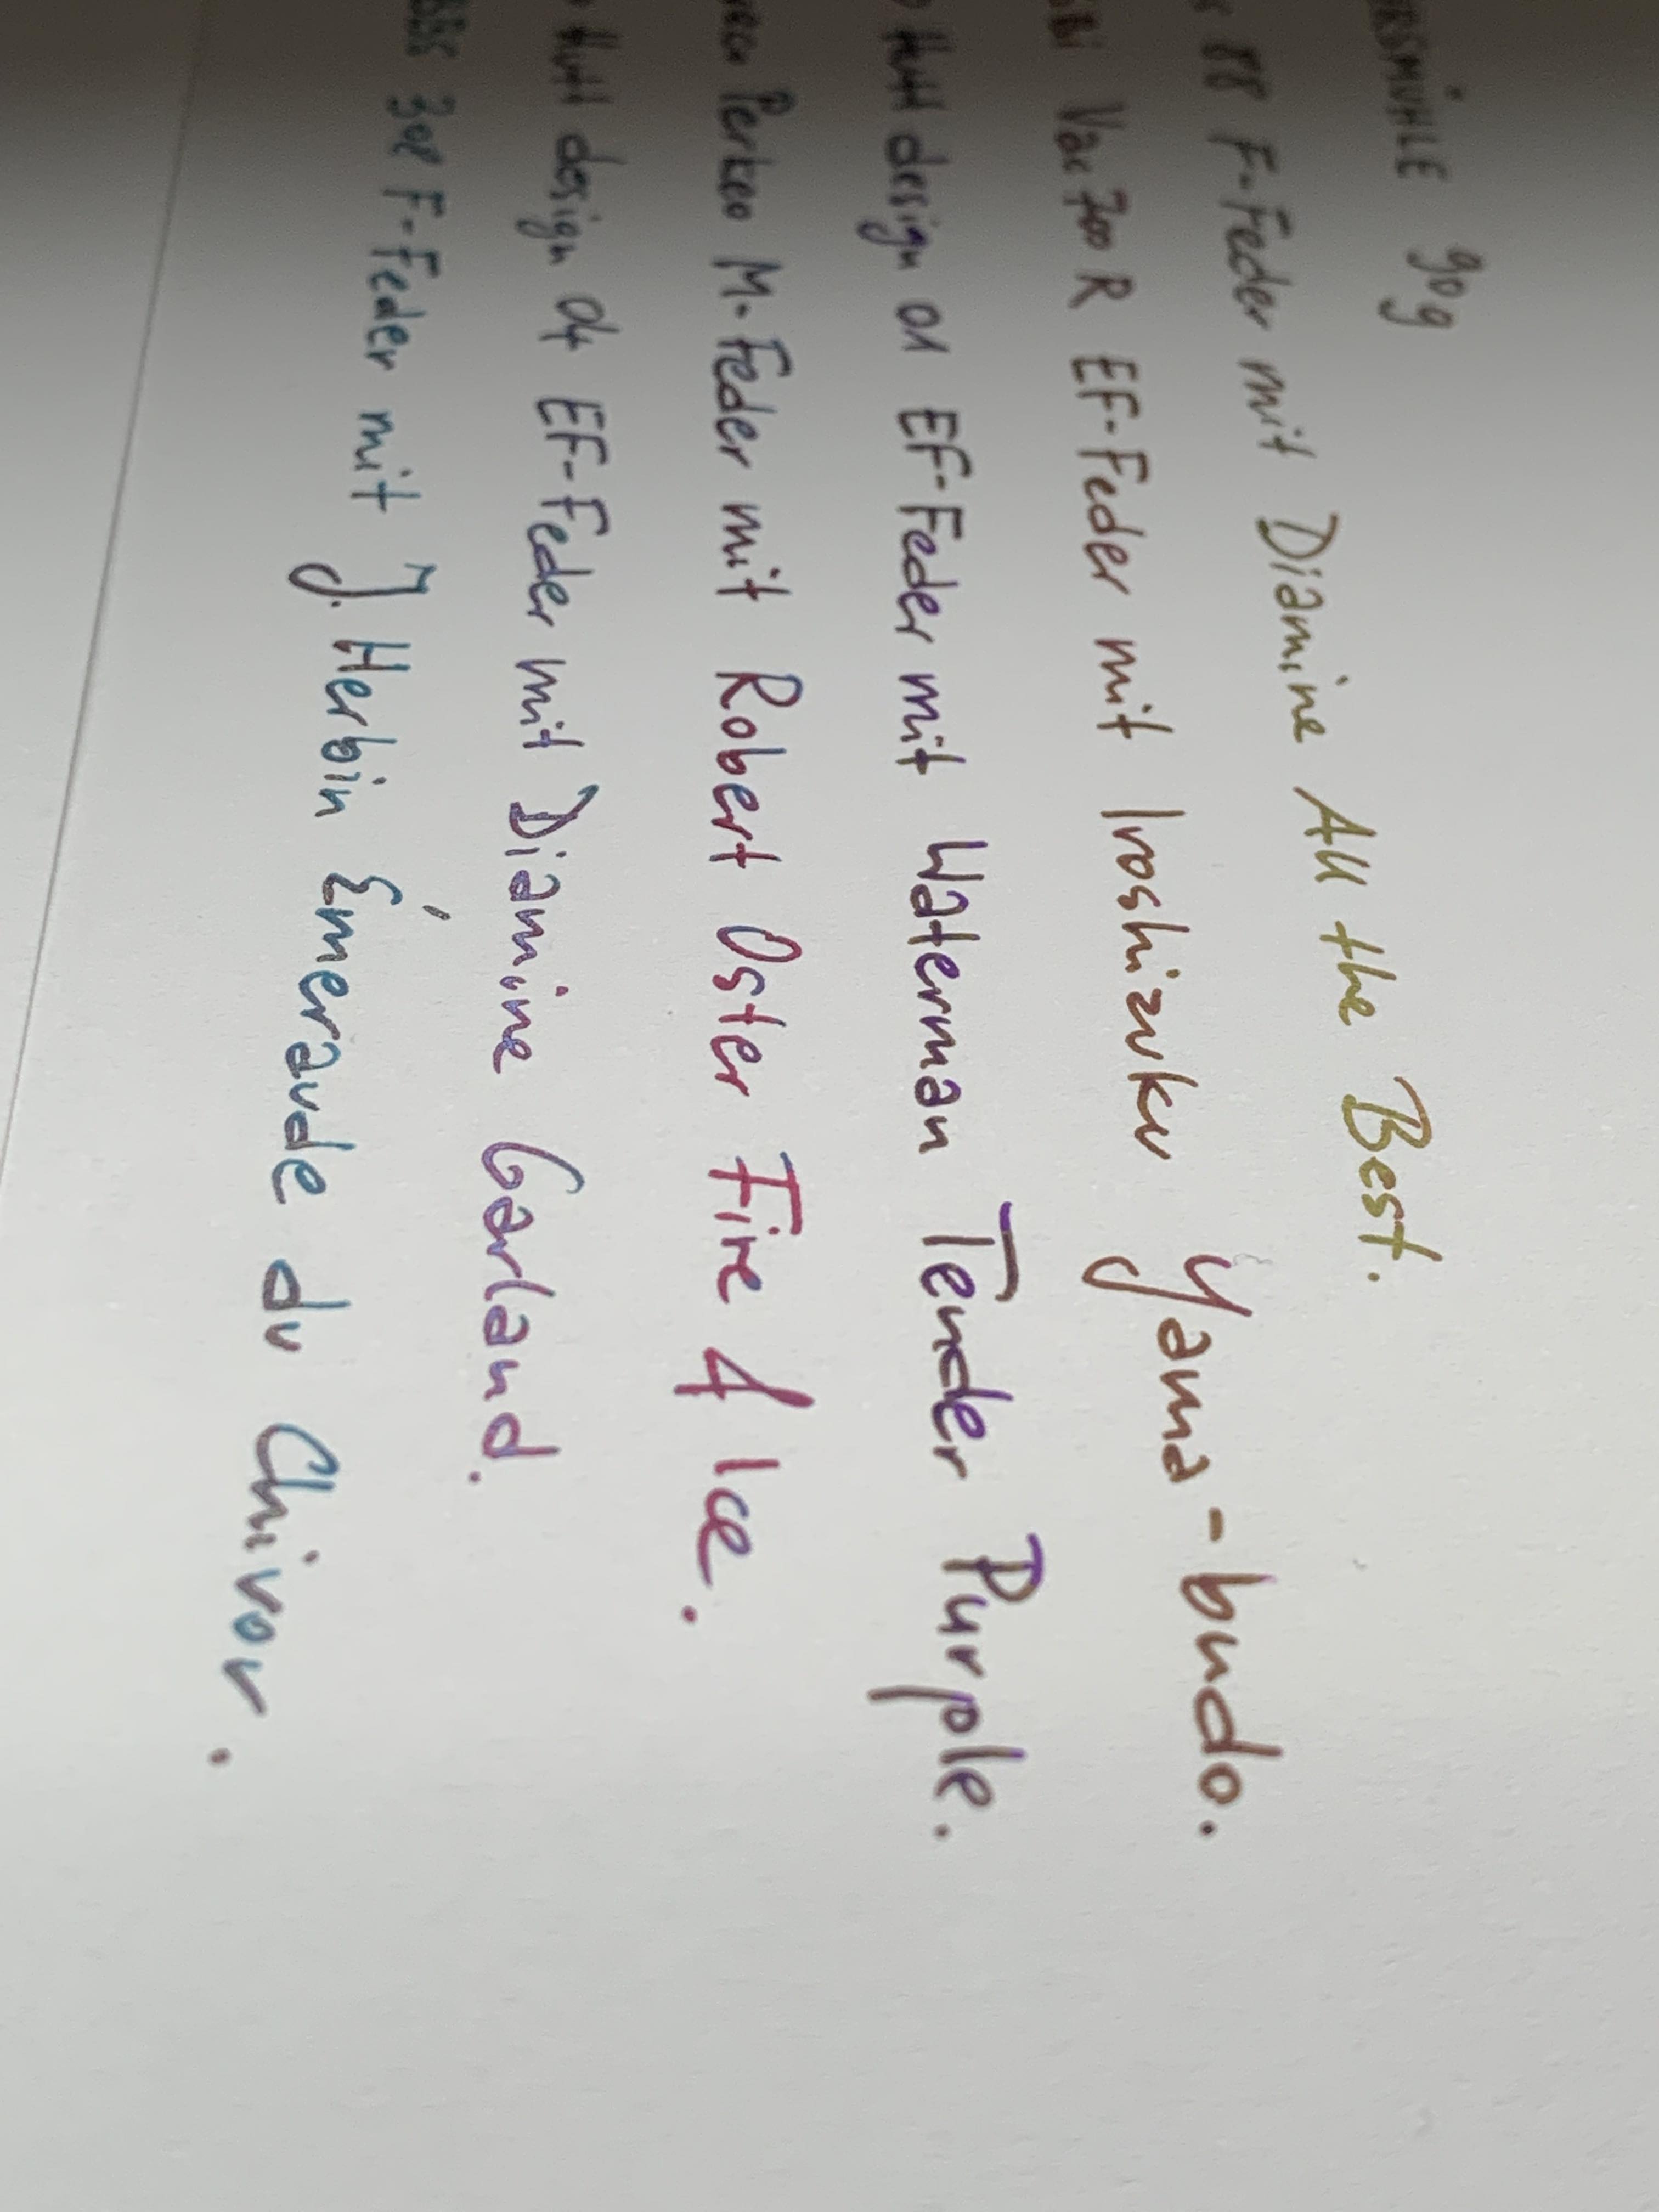 909
88 F-Feder mit Diamine All the Best.
Vac 700 R EF-Feder mit Iroshizuku Yama-budo.
Hutt design 01 EF-Feder mit Waterman Tender Purple.
Perkeo M-Feder mit Robert Oster Fire & Ice.
Hutt design 04 EF-Feder mit Diamine Garland.
F-Feder mit J. Herbin Émeraude du Chivor.